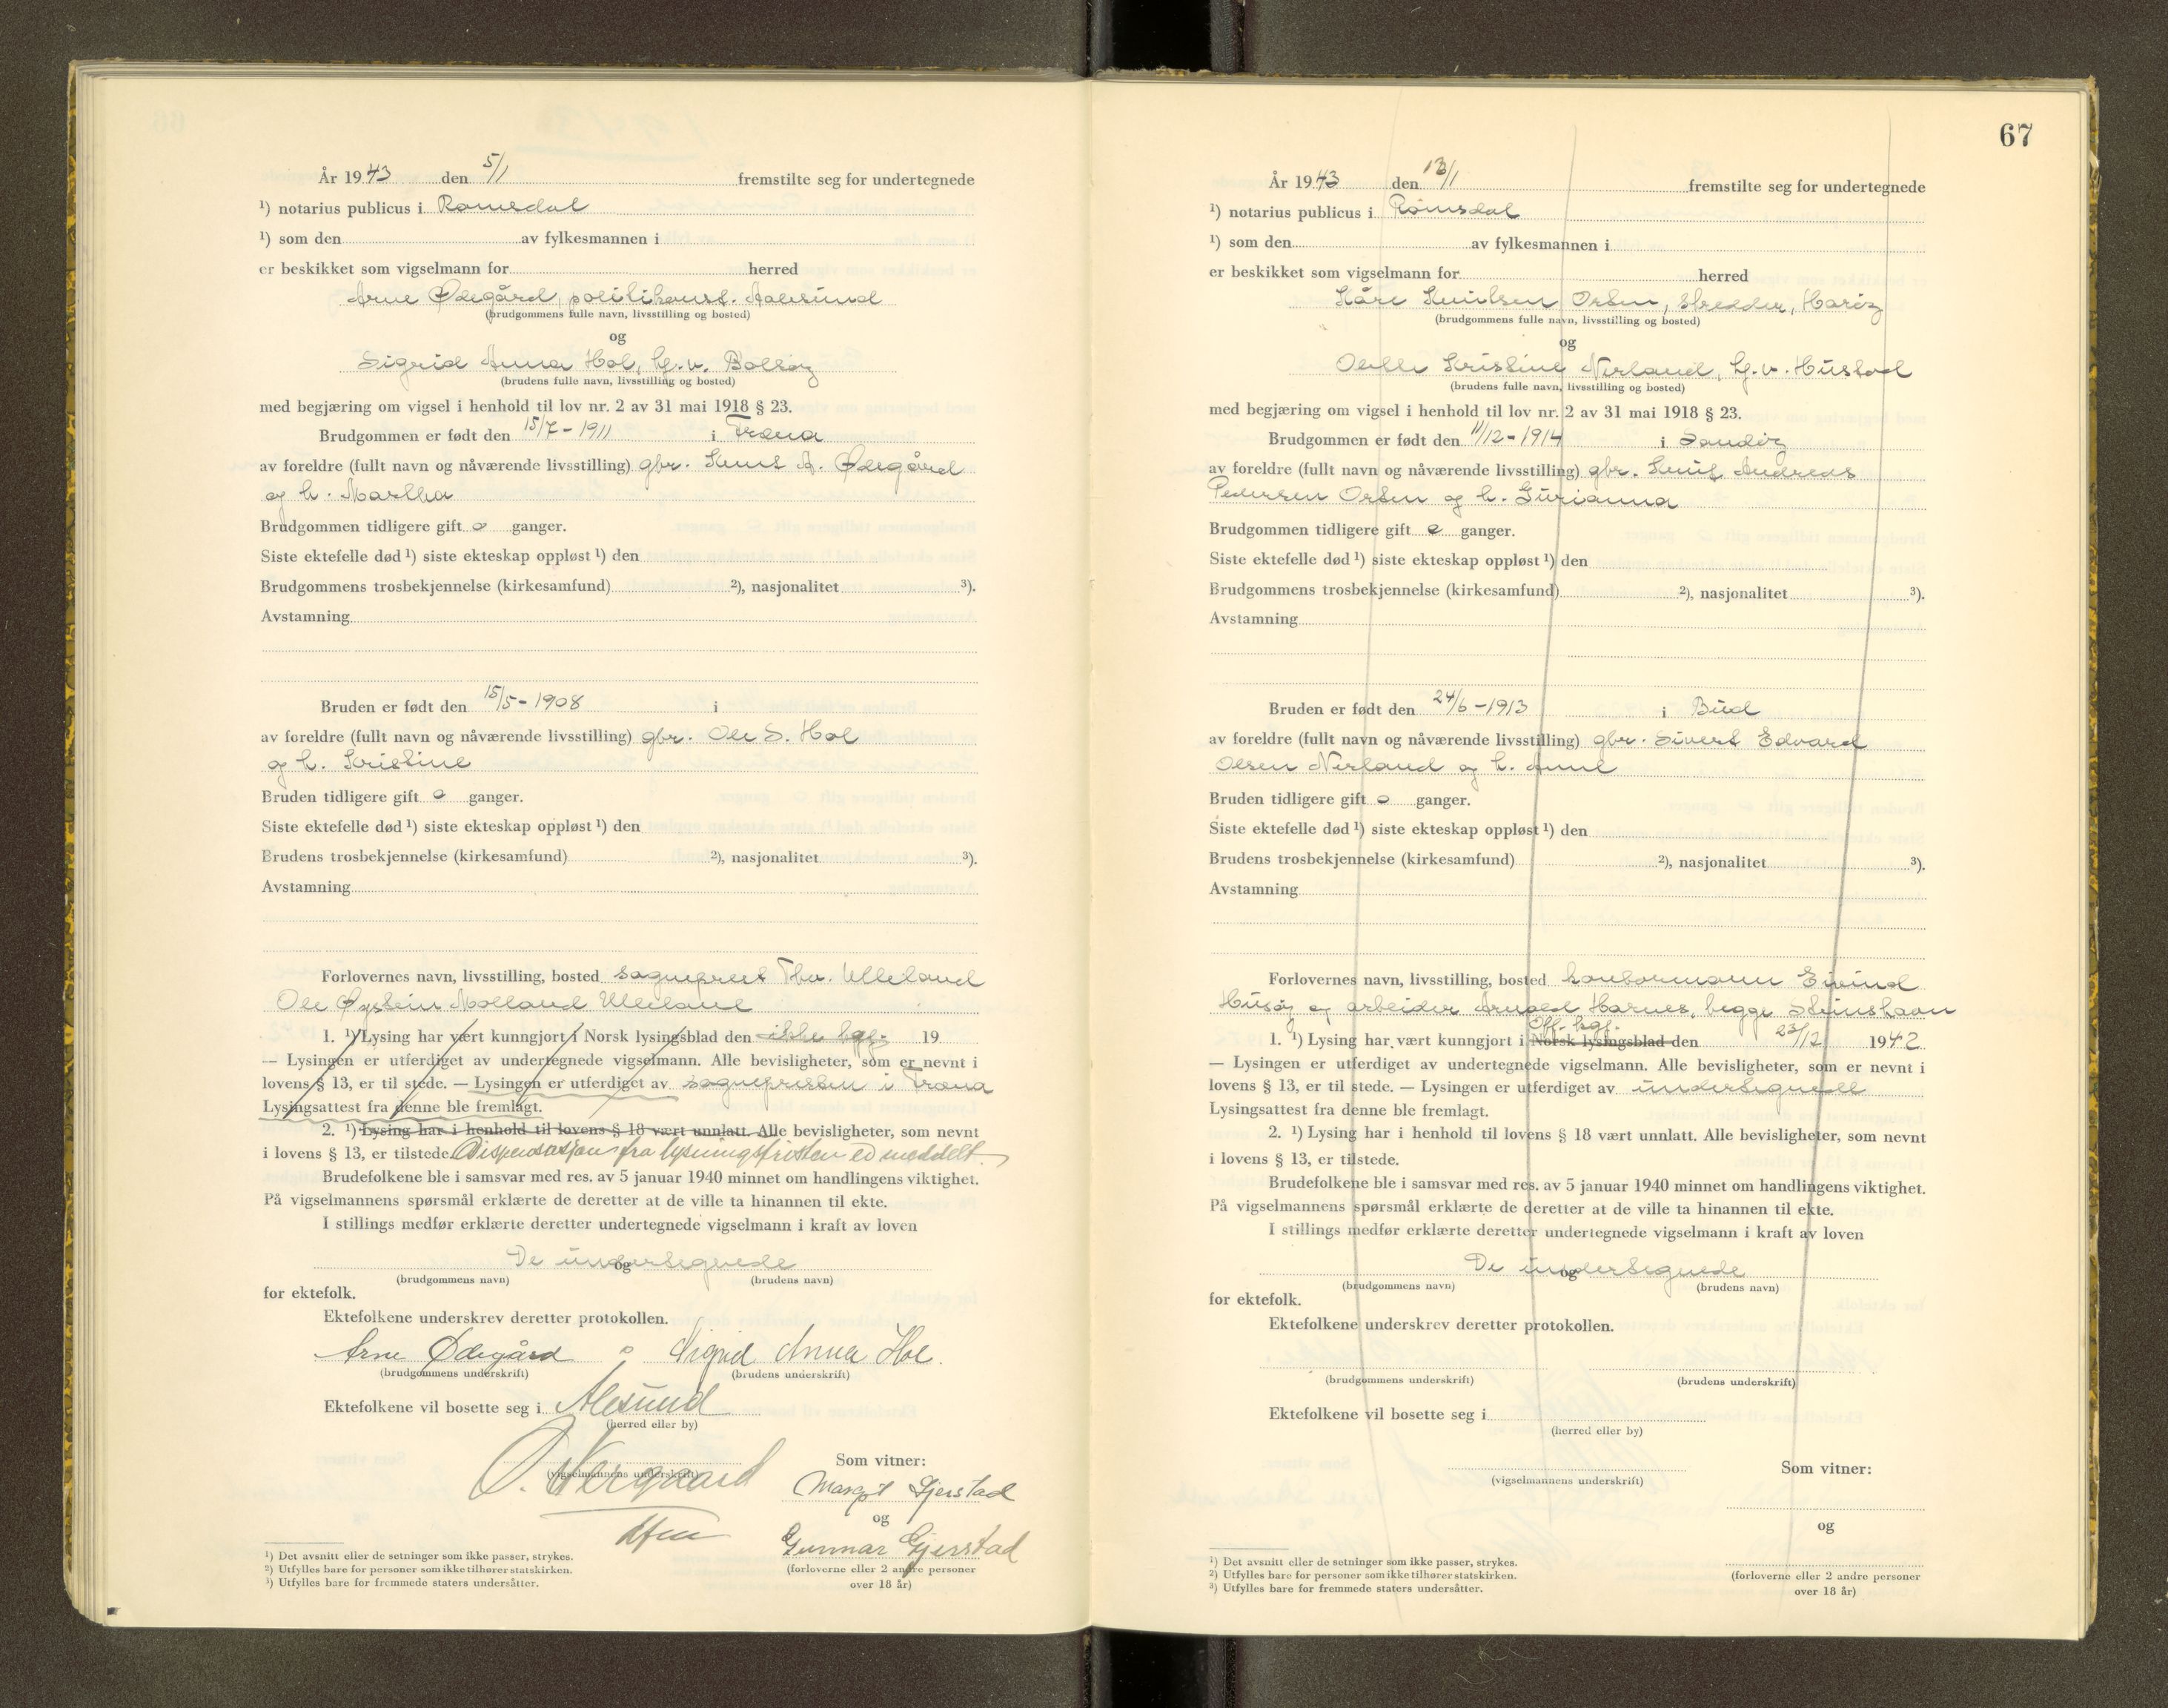 År 1943 den 5/1 fremstilte seg for undertegnede
¹) notarius publicus i Romsdal
¹) som den av fylkesmannen i
er beskikket som vigselmann for herred
Arne Ødegård, politikonst. Aalesund
(brudgommens fulle navn, livsstilling og bosted)
og
Sigrid Anna Hol, hj.v. Bolsøy
(brudens fulle navn, livsstilling og bosted)
med begjæring om vigsel i henhold til lov nr. 2 av 31 mai 1918 § 23.
Brudgommen er født den 15/7-1911 i Fræna
av foreldre (fullt navn og nåværende livsstilling) gbr. Knut A. Ødegård
og h. Martha
Brudgommen tidligere gift o ganger.
Siste ektefelle død ¹) siste ekteskap oppløst ¹) den
Brudgommens trosbekjennelse (kirkesamfund) ²), nasjonalitet ³).
Avstamning
Bruden er født den 15/5-1908 i
av foreldre (fullt navn og nåværende livsstilling) gbr. Ole S. Hol
og h. Kristine
Bruden tidligere gift o ganger.
Siste ektefelle død ¹) siste ekteskap oppløst ¹) den
Brudens trosbekjennelse (kirkesamfund) ²), nasjonalitet ³).
Avstamning
Forlovernes navn, livsstilling, bosted sogneprest Thv. Ulleland
Ole Øystein Molland Ulleland
1. ¹) Lysing har vært kunngjort i Norsk lysingsblad den ikke kgj. 19
— Lysingen er utferdiget av undertegnede vigselmann. Alle bevisligheter, som er nevnt i
lovens § 13, er til stede. — Lysingen er utferdiget av sognepresten i Fræna
Lysingsattest fra denne ble fremlagt.
2. ¹) Lysing har i henhold til lovens § 18 vært unnlatt. Alle bevisligheter, som nevnt
i lovens § 13, er tilstede. Dispensasjon fra lysningsfristen er meddelt.
Brudefolkene ble i samsvar med res. av 5 januar 1940 minnet om handlingens viktighet.
På vigselmannens spørsmål erklærte de deretter at de ville ta hinannen til ekte.
I stillings medfør erklærte deretter undertegnede vigselmann i kraft av loven
De undertegnede
og
(brudgommens navn) (brudens navn)
for ektefolk.
Ektefolkene underskrev deretter protokollen.
Arne Ødegård o Sigrid Anna Hol.
(brudgommens underskrift) (brudens underskrift)
Ektefolkene vil bosette seg i Ålesund
(herred eller by)
(vigselmannens underskrift)
Som vitner:
Margit Gjerstad
og
Gunnar Gjerstad
(forloverne eller 2 andre personer
over 18 år)
¹) Det avsnitt eller de setninger som ikke passer, strykes.
²) Utfylles bare for personer som ikke tilhører statskirken.
³) Utfylles bare for fremmede staters undersåtter.
67
År 1943 den 13/1 fremstilte seg for undertegnede
¹) notarius publicus i Romsdal
¹) som den av fylkesmannen i
er beskikket som vigselmann for herred
Kåre Knutsen Orten, skredder, Harøy
(brudgommens fulle navn, livsstilling og bosted)
og
Kristine Nerland, hj.v. Hustad
(brudens fulle navn, livsstilling og bosted)
med begjæring om vigsel i henhold til lov nr. 2 av 31 mai 1918 § 23.
Brudgommen er født den 11/12-1914 i Sandøy
av foreldre (fullt navn og nåværende livsstilling) gbr. Knut Andreas
Pedersen Orten og h. Gurianna
Brudgommen tidligere gift o ganger.
Siste ektefelle død ¹) siste ekteskap oppløst ¹) den
Brudgommens trosbekjennelse (kirkesamfund) ²), nasjonalitet ³).
Avstamning
Bruden er født den 24/6-1913 i Bud
av foreldre (fullt navn og nåværende livsstilling) gbr. Sivert Edvard
Olsen Nerland og h. Anne
Bruden tidligere gift o ganger.
Siste ektefelle død ¹) siste ekteskap oppløst ¹) den
Brudens trosbekjennelse (kirkesamfund) ²), nasjonalitet ³).
Avstamning
Forlovernes navn, livsstilling, bosted kontormann Eivind
Husøy og arbeider Arnold Harnes, begge Steinshavn
Off. kgj.
1. ¹) Lysing har vært kunngjort i Norsk lysingsblad den 23/12 1942
— Lysingen er utferdiget av undertegnede vigselmann. Alle bevisligheter, som er nevnt i
lovens § 13, er til stede. — Lysingen er utferdiget av undertegnede
Lysingsattest fra denne ble fremlagt.
2. ¹) Lysing har i henhold til lovens § 18 vært unnlatt. Alle bevisligheter, som nevnt
i lovens § 13, er tilstede.
Brudefolkene ble i samsvar med res. av 5 januar 1940 minnet om handlingens viktighet.
På vigselmannens spørsmål erklærte de deretter at de ville ta hinannen til ekte.
I stillings medfør erklærte deretter undertegnede vigselmann i kraft av loven
De undertegnede
og
(brudgommens navn) (brudens navn)
for ektefolk.
Ektefolkene underskrev deretter protokollen.
(brudgommens underskrift) (brudens underskrift)
Ektefolkene vil bosette seg i
(herred eller by)
(vigselmannens underskrift)
Som vitner:
og
(forloverne eller 2 andre personer
over 18 år)
¹) Det avsnitt eller de setninger som ikke passer, strykes.
²) Utfylles bare for personer som ikke tilhører statskirken.
³) Utfylles bare for fremmede staters undersåtter.